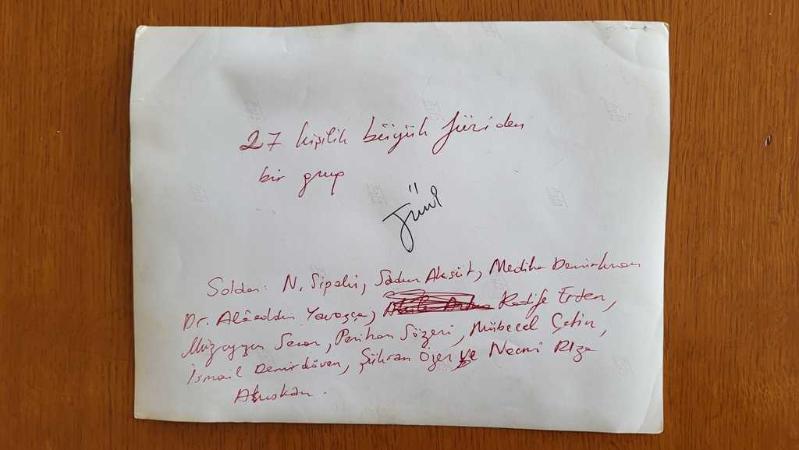 27 kişilik büyük jüriden
bir grup
Jüri
Soldan: N. Sipahi, Sadun Aksüt, Mediha Demirkıran
Dr. Alâeddin Yavaşça, Radife Erten,
Müzeyyen Senar, Perihan Sözeri, Mübeccel Çetin,
İsmail Demirdöven, Şükran Özer ve Necmi Rıza
Ahıskan.